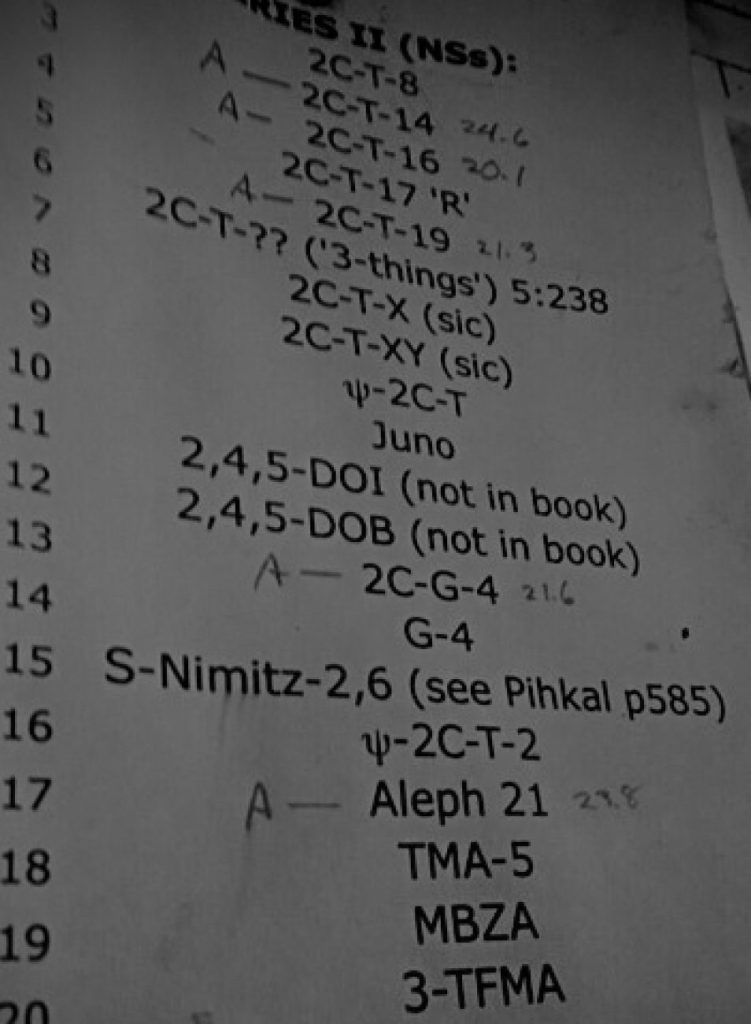 3 RIES II (NSs):
4 2C-T-8
5 A — 2C-T-14 24.6
6 A — 2C-T-16 20.1
7 2C-T-17 'R'
8 A — 2C-T-19 21.3
9 2C-T-?? ('3-things') 5:238
10 2C-T-X (sic)
11 2C-T-XY (sic)
12 ψ-2C-T
13 Juno
14 2,4,5-DOI (not in book)
15 2,4,5-DOB (not in book)
16 A — 2C-G-4 21.6
17 G-4
18 S-Nimitz-2,6 (see Pihkal p585)
19 ψ-2C-T-2
20 A — Aleph 21 29.8
TMA-5
MBZA
3-TFMA